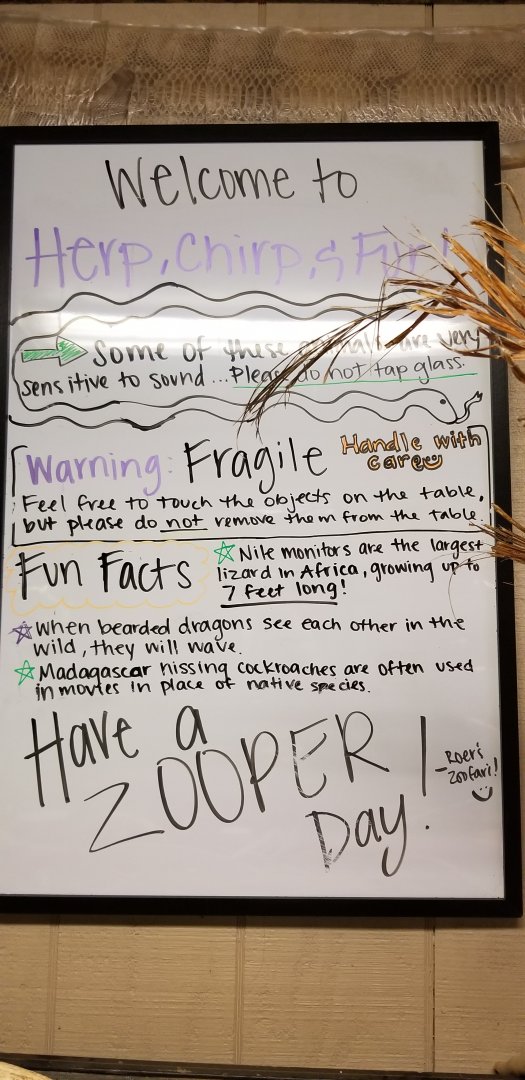 Welcome to
Herp, Chirp, & Fur!
Some of these animals are very
sensitive to sound... Please do not tap glass.
Warning: Fragile
Handle with
care
Feel free to touch the objects on the table,
but please do not remove them from the table.
Fun Facts
Nile monitors are the largest
lizard in Africa, growing up to
7 feet long!
When bearded dragons see each other in the
wild, they will wave.
Madagascar hissing cockroaches are often used
in movies in place of native species.
Have a
ZOOPER
Day!
-Roer's
Zoofari!